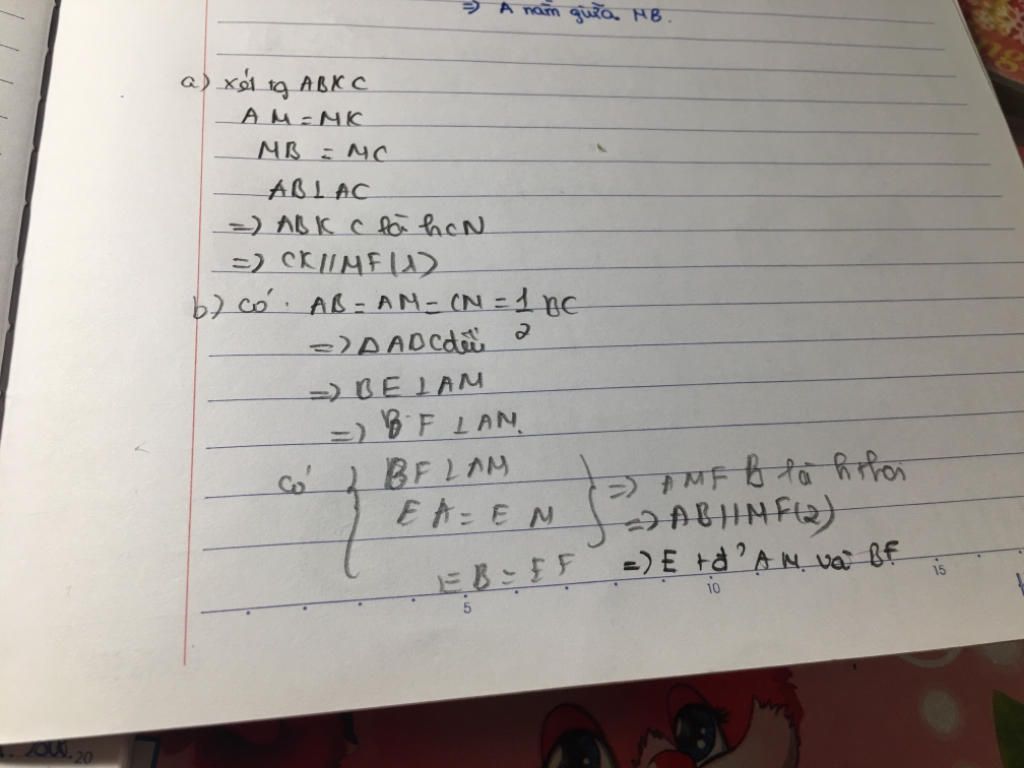 => A nằm giữa MB.
a) xét tg ABKC
AM = MK
MB = MC
AB ⊥ AC
=> ABKC là hcN
=> CK // MF (1)
b) có. AB = AM = CM = 1/2 BC
=> Δ ABC đều
=> BE ⊥ AM
=> BF ⊥ AM.
Có { BF ⊥ AM
EA = EM } => AMFB là h thoi
=> AB // MF (2)
EB = EF => E tđ' AM và BF
5 10 15
20